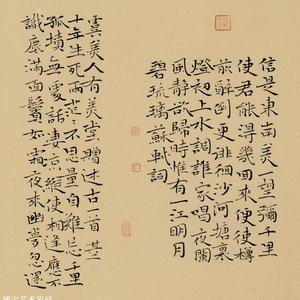 信是東南美一望彌千里
使君能得幾回來便使樽
前醉倒更徘徊沙河塘裏
燈初上水調誰家唱夜闌
風靜欲歸時惟有一江明月
碧琉璃蘇軾詞
虞美人有美堂贈述古一首
十年生死兩茫〻不思量自難忘千里
孤墳無處話淒涼縱使相逢應不
識塵滿面鬢如霜夜來幽夢忽還